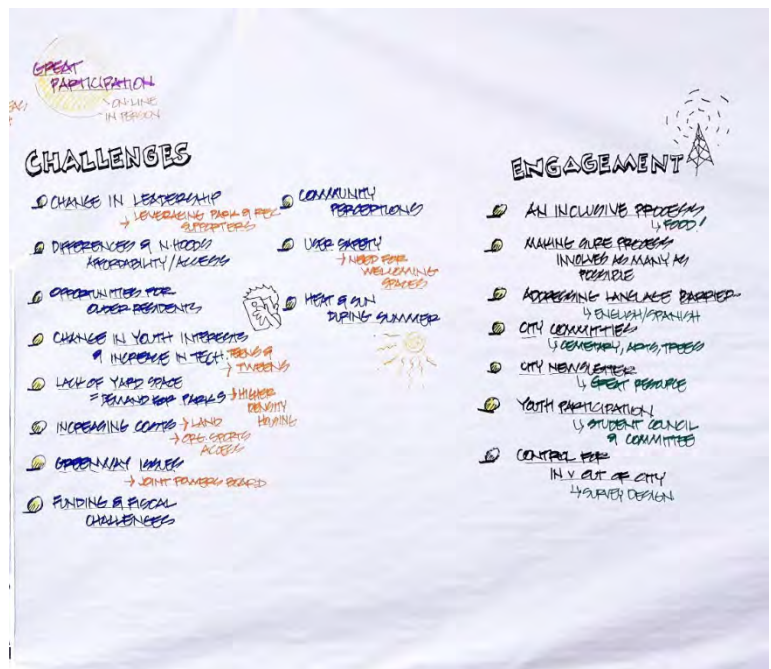 GREAT
PARTICIPATION
ON-LINE
IN PERSON
CHALLENGES
CHANGE IN LEADERSHIP
→ LEVERAGING PARK & REC
SUPPORTERS
DIFFERENCES & N-HOODS
AFFORDABILITY/ACCESS
OPPORTUNITIES FOR
OLDER RESIDENTS
CHANGE IN YOUTH INTERESTS
& INCREASE IN TECH. TEENS &
→ TWEENS
LACK OF YARD SPACE
= DEMAND FOR PARKS → HIGHER
DENSITY
HOUSING
INCREASING COSTS → LAND
→ ORG. SPORTS
ACCESS
GREENWAY ISSUES
→ JOINT POWERS BOARD
FUNDING & FISCAL
CHALLENGES
COMMUNITY
PERCEPTIONS
USER SAFETY
→ NEED FOR
WELCOMING
SPACES
HEAT & SUN
DURING SUMMER
ENGAGEMENT
AN INCLUSIVE PROCESS
↳ FOOD!
MAKING SURE PROCESS
INVOLVES AS MANY AS
POSSIBLE
ADDRESSING LANGUAGE BARRIER
→ ENGLISH/SPANISH
CITY COMMITTIES
↳ CEMETARY, ARTS, TREES
CITY NEWSLETTER
↳ GREAT RESOURCE
YOUTH PARTICIPATION
↳ STUDENT COUNCIL
& COMMITTEE
CONTROL FOR
IN V OUT OF CITY
↳ SURVEY DESIGN